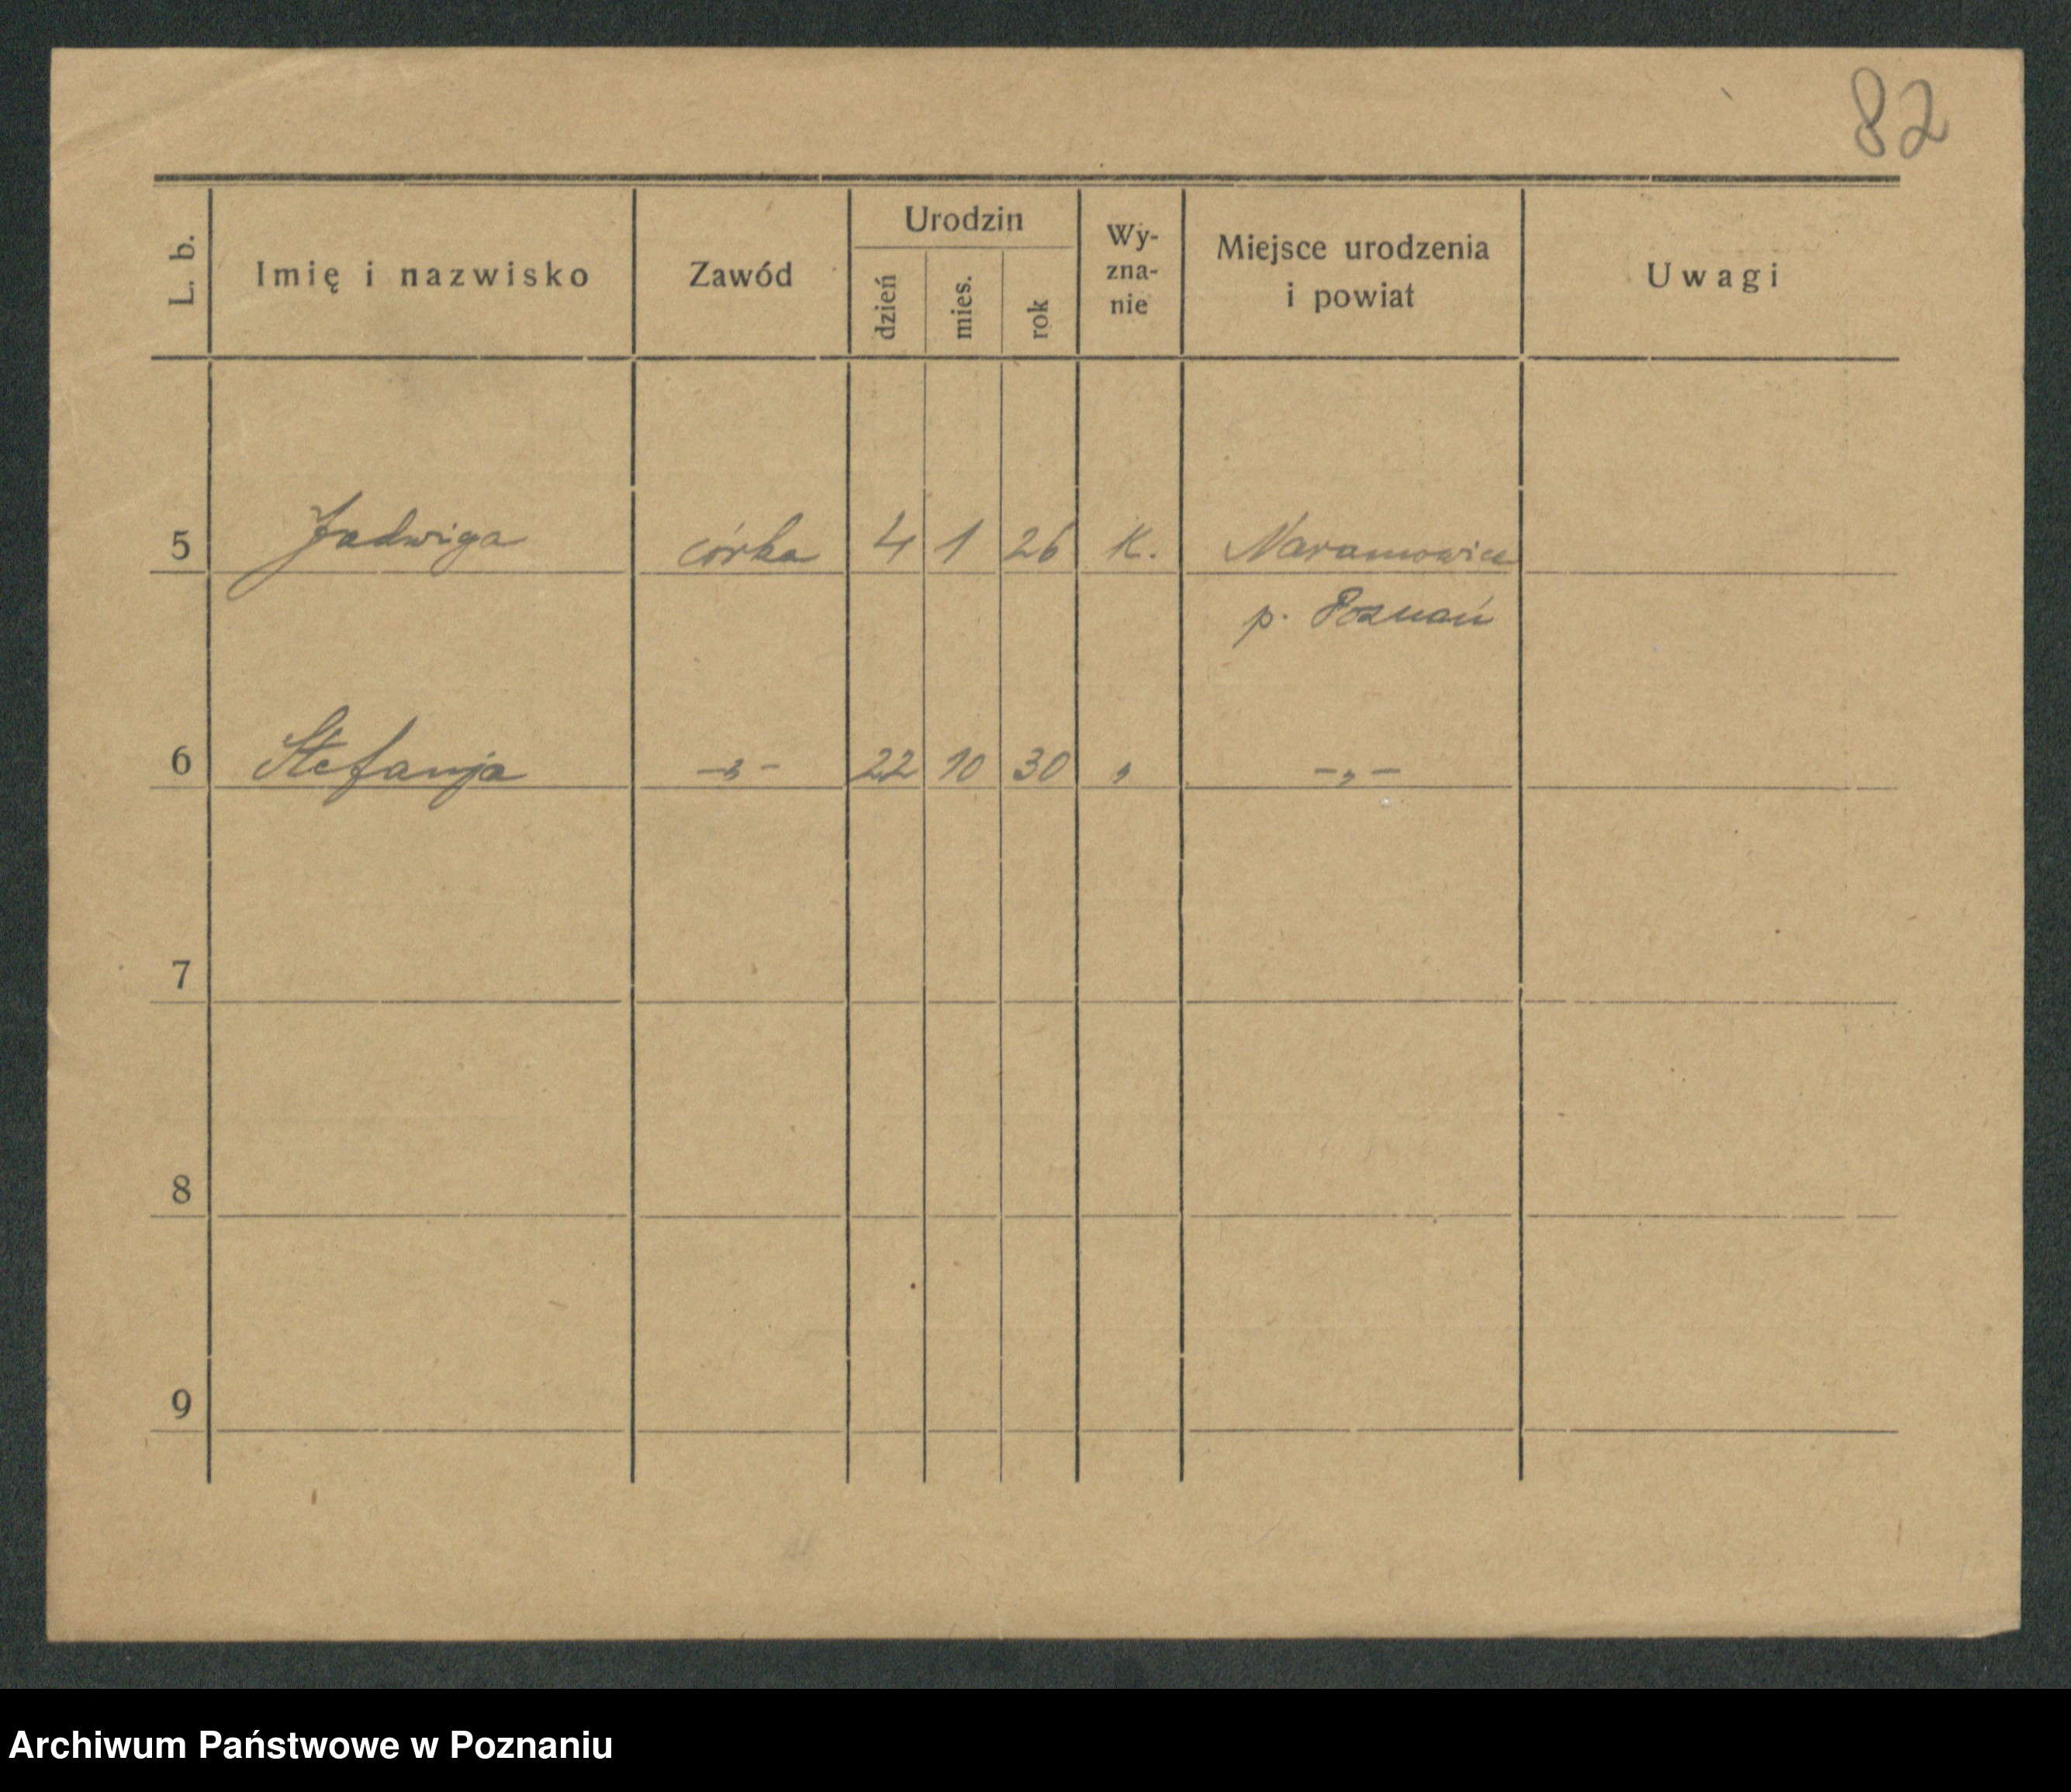 82
L. b. Imię i nazwisko Zawód Urodzin dzień mies. rok Wy-zna-nie Miejsce urodzenia i powiat Uwagi
5 Jadwiga córka 4 1 26 K. Naramowice
p. Poznań
6 Stefanja -„- 22 10 30 „ -„-
7
8
9
Archiwum Państwowe w Poznaniu